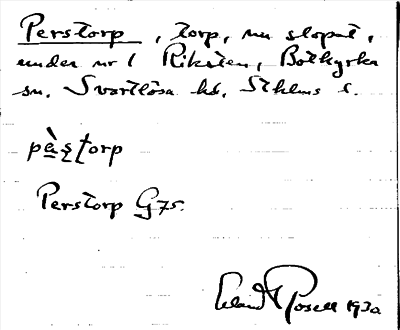 Perstorp, torp, nu slopat,
under nr 1 Riksten, Botkyrka
sn. Svartlösa hd. Sthlms l.
pæ̀s̨ţorp
Perstorp G 75.
Erland Rosell 1930